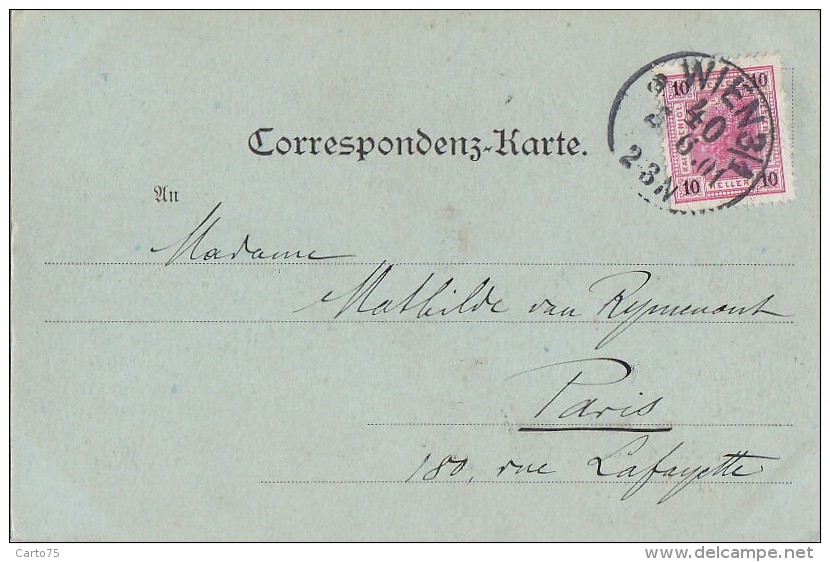 Correspondenz-Karte.
An
Madame
Mathilde van Reymenant
Paris
180, rue Lafayette
WIEN 3/1
40
6. 01
2-3N
10
10
10
10
HELLER
Carto75
www.delcampe.net